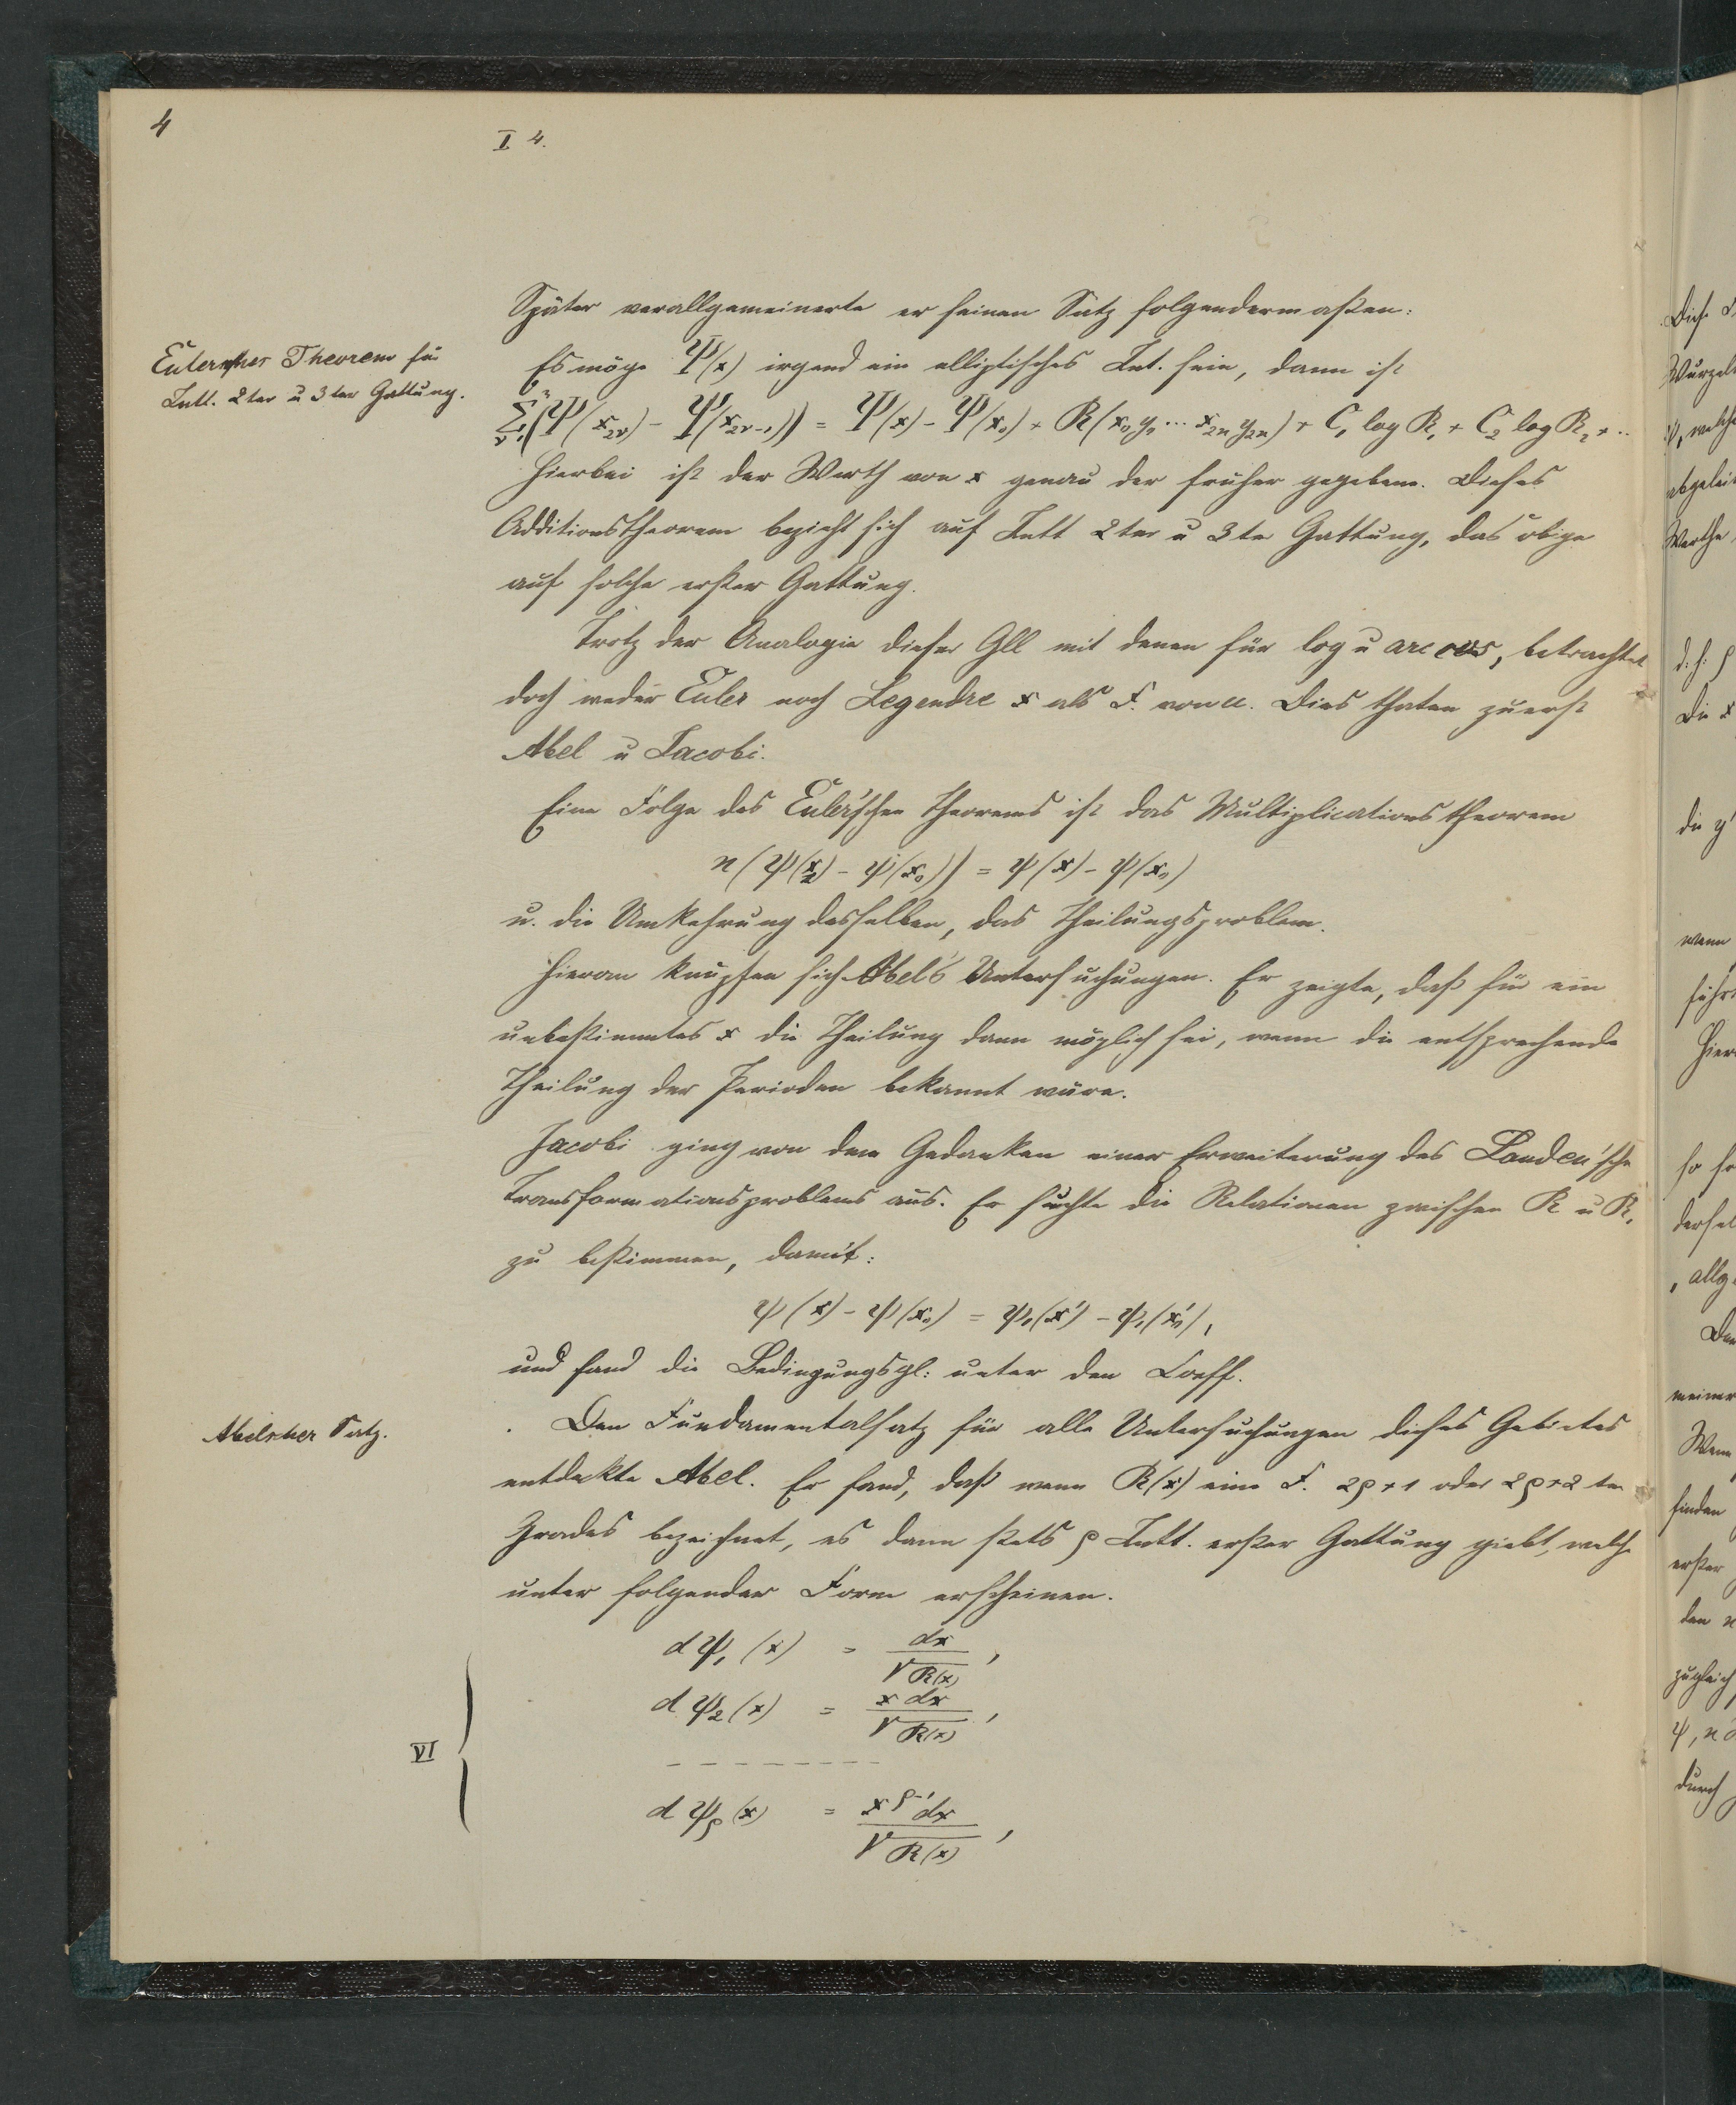 4
I 4.
Später verallgemeinerte er seinen Satz folgendermaßen:
Eulersches Theorem für
Intt. 2ter u 3ter Gattung.
Es möge Ψ(x) irgend ein elliptisches Int. sein, dann ist
Σ(Ψ(x₂ᵥ) - Ψ(x₂ᵥ₋₁)) = Ψ(x) - Ψ(x₀) + R(x₀y₀ ... x₂ₙy₂ₙ) + C₁ log R₁ + C₂ log R₂ + ..
Hierbei ist der Werth von x genau der früher gegebene. Dieses
Additionstheorem bezieht sich auf Intt 2ter u 3ter Gattung, das obige
auf solche erster Gattung.
Trotz der Analogie dieser Gll mit denen für log u arc cos, betrachtet
doch weder Euler noch Legendre x als F. von u. Dies thaten zuerst
Abel u Jacobi.
Eine Folge des Euler'schen Theorems ist das Multiplicationstheorem
n(ψ(x₂) - ψ(x₀)) = ψ(x) - ψ(x₀)
u. die Umkehrung desselben, das Theilungsproblem.
Hieran knüpfen sich Abel's Untersuchungen. Er zeigte, daß für ein
unbestimmtes x die Theilung dann möglich sei, wenn die entsprechende
Theilung der Perioden bekannt wäre.
Jacobi ging von dem Gedanken einer Erweiterung des Landen'schen
Transformationsproblems aus. Er suchte die Relationen zwischen R u R₁
zu bestimmen, damit:
ψ(x) - ψ(x₀) = ψ₁(x') - ψ₁(x₀'),
und fand die Bedingungsgl: unter den Coeff.
Abelscher Satz.
Den Fundamentalsatz für alle Untersuchungen dieses Gebietes
entdeckte Abel. Er fand, daß wenn R(x) eine F. 2ρ+1 oder 2ρ+2 ten
Grades bezeichnet, es dann stets ρ Intt. erster Gattung giebt, welche
unter folgender Form erscheinen.
dψ₁(x) = dx / √R(x),
dψ₂(x) = x dx / √R(x),
VI
- - - - - - - - -
dψᵨ(x) = x^ρ-1 dx / √R(x),